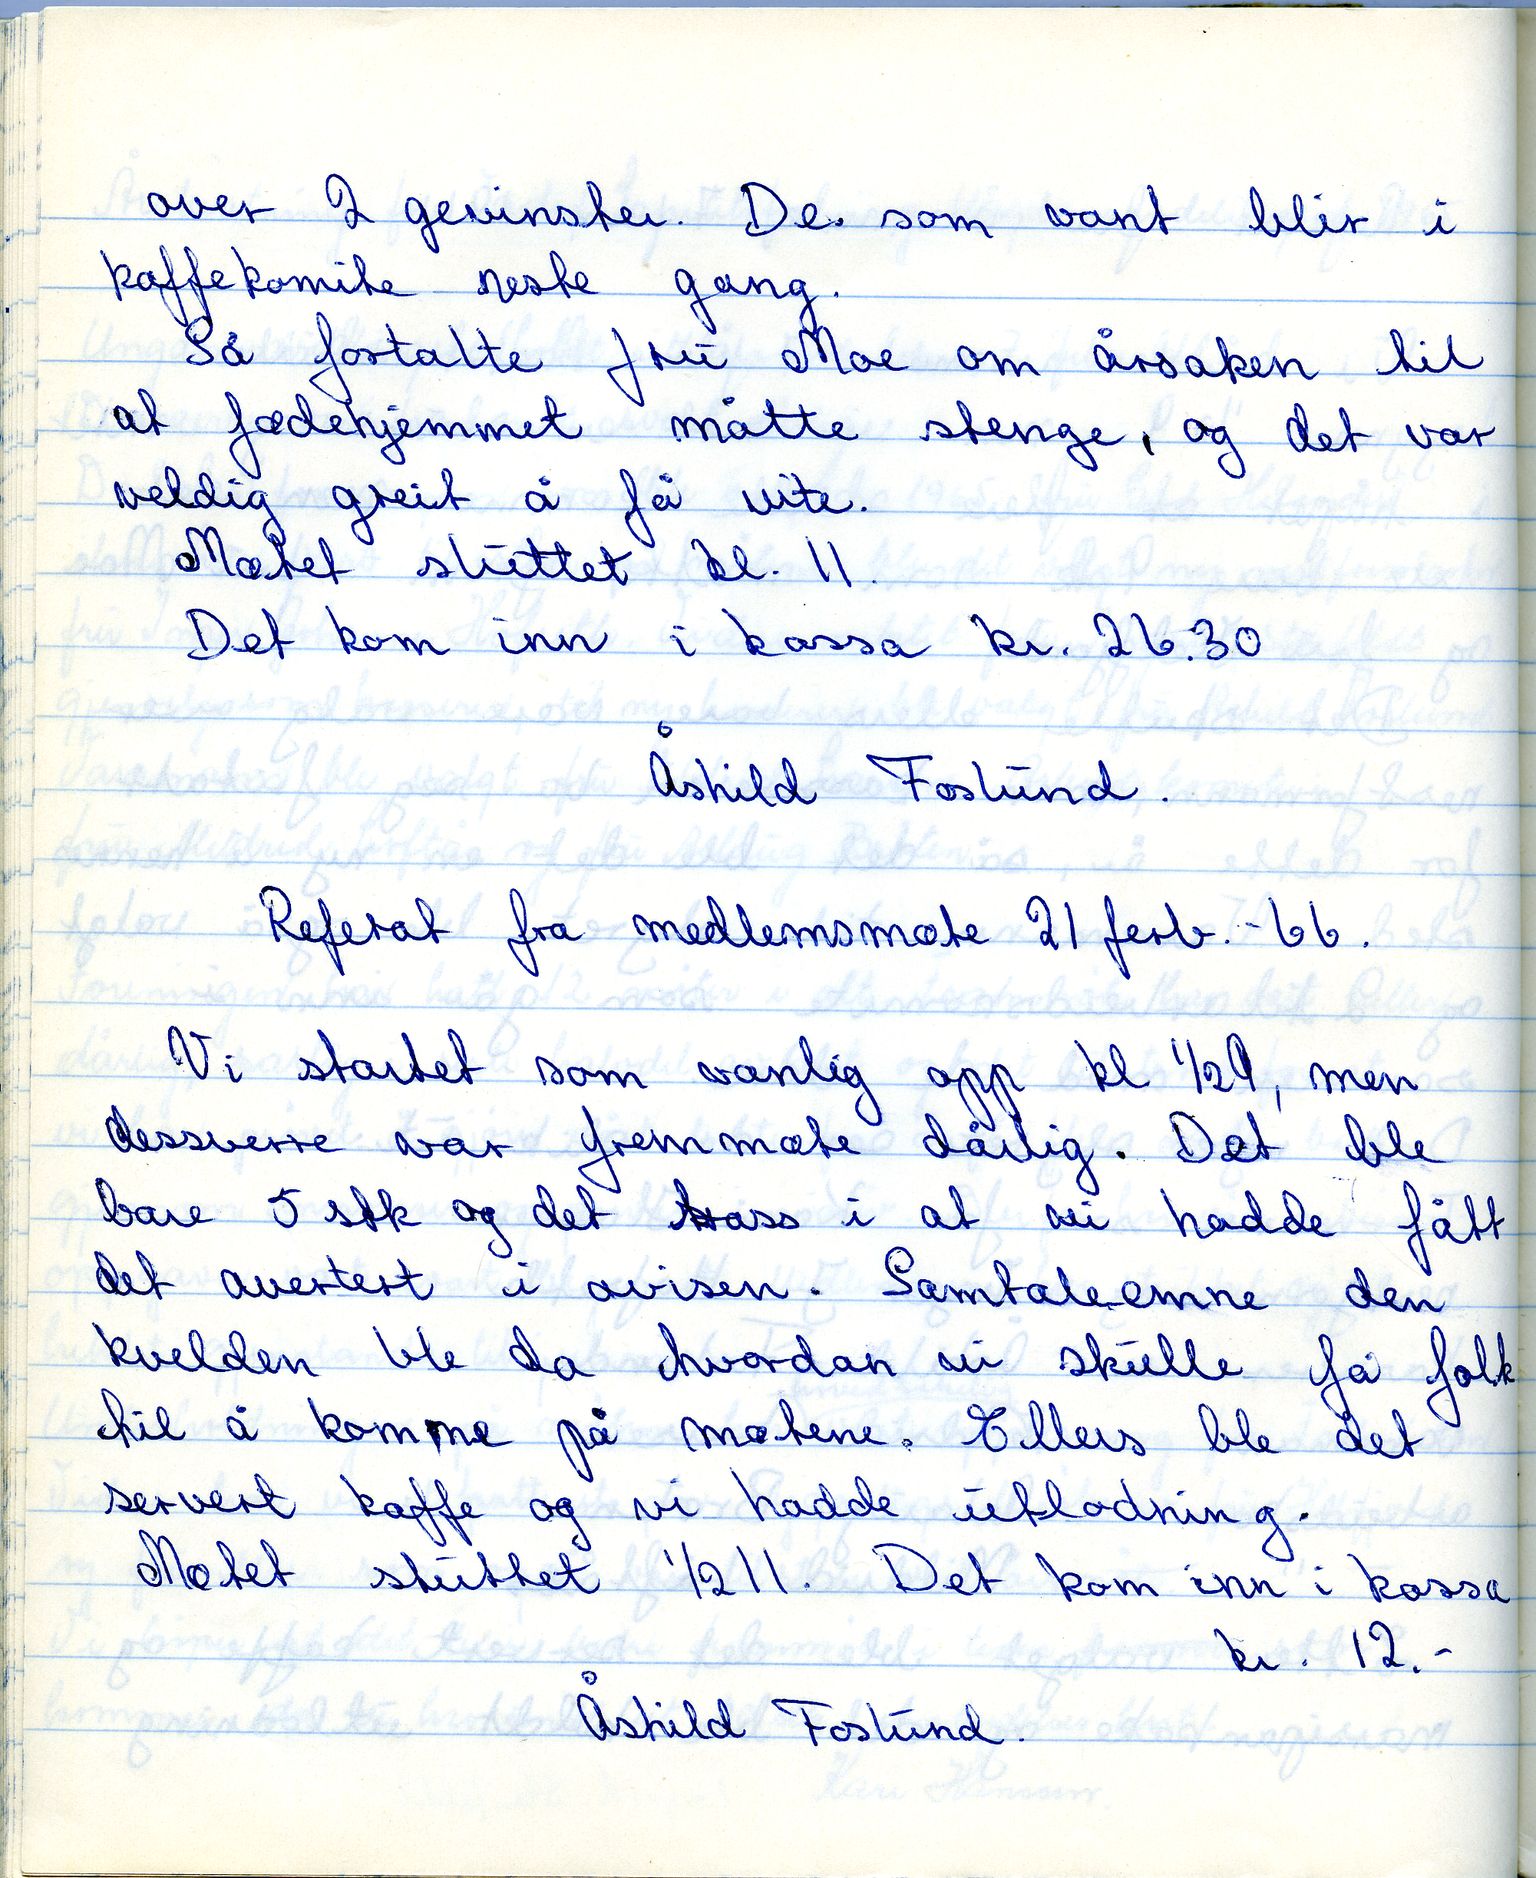 over 2 gevinster. De som vant blir i
kaffekomite neste gang.
Så fortalte fru Moe om årsaken til
at fødehjemmet måtte stenge, og det var
veldig greit å få vite.
Møtet sluttet kl. 11.
Det kom inn i kassa kr. 26.30
Åshild Foslund.
Referat fra medlemsmøte 21 ferb. -66.
Vi startet som vanlig opp kl 1/29, men
dessverre var fremmøte dårlig. Det ble
bare 5 stk og det trass i at vi hadde fått
det avertert i avisen. Samtale-emne den
kvelden ble da hvordan vi skulle få folk
til å komme på møtene. Ellers ble det
servert kaffe og vi hadde utlodning.
Møtet sluttet 1/2 11. Det kom inn i kassa
kr. 12.-
Åshild Foslund.